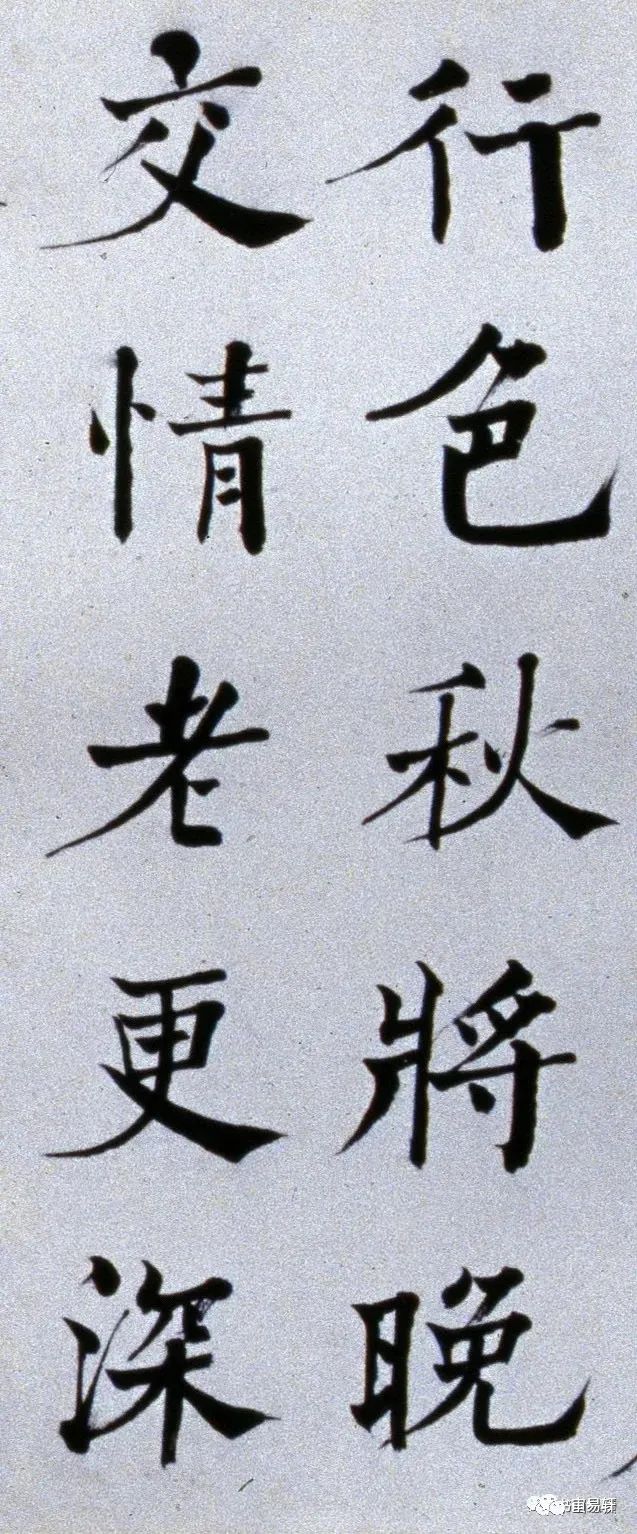 行色秋將晚
交情老更深